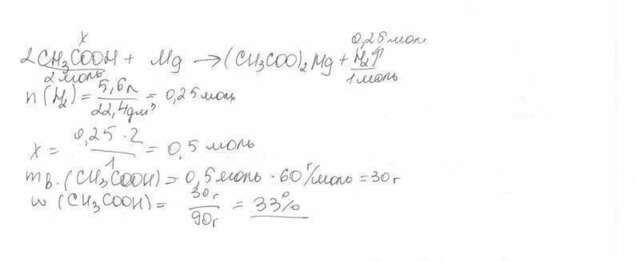 x 0,25 моль
2CH₃COOH + Mg → (CH₃COO)₂Mg + H₂↑
2 моль 1 моль
n(H₂) = 5,6л / 22,4дм³ = 0,25 моль
x = 0,25 · 2 / 1 = 0,5 моль
m в. (CH₃COOH) = 0,5 моль · 60 г/моль = 30 г
w (CH₃COOH) = 30 г / 90 г = 33%